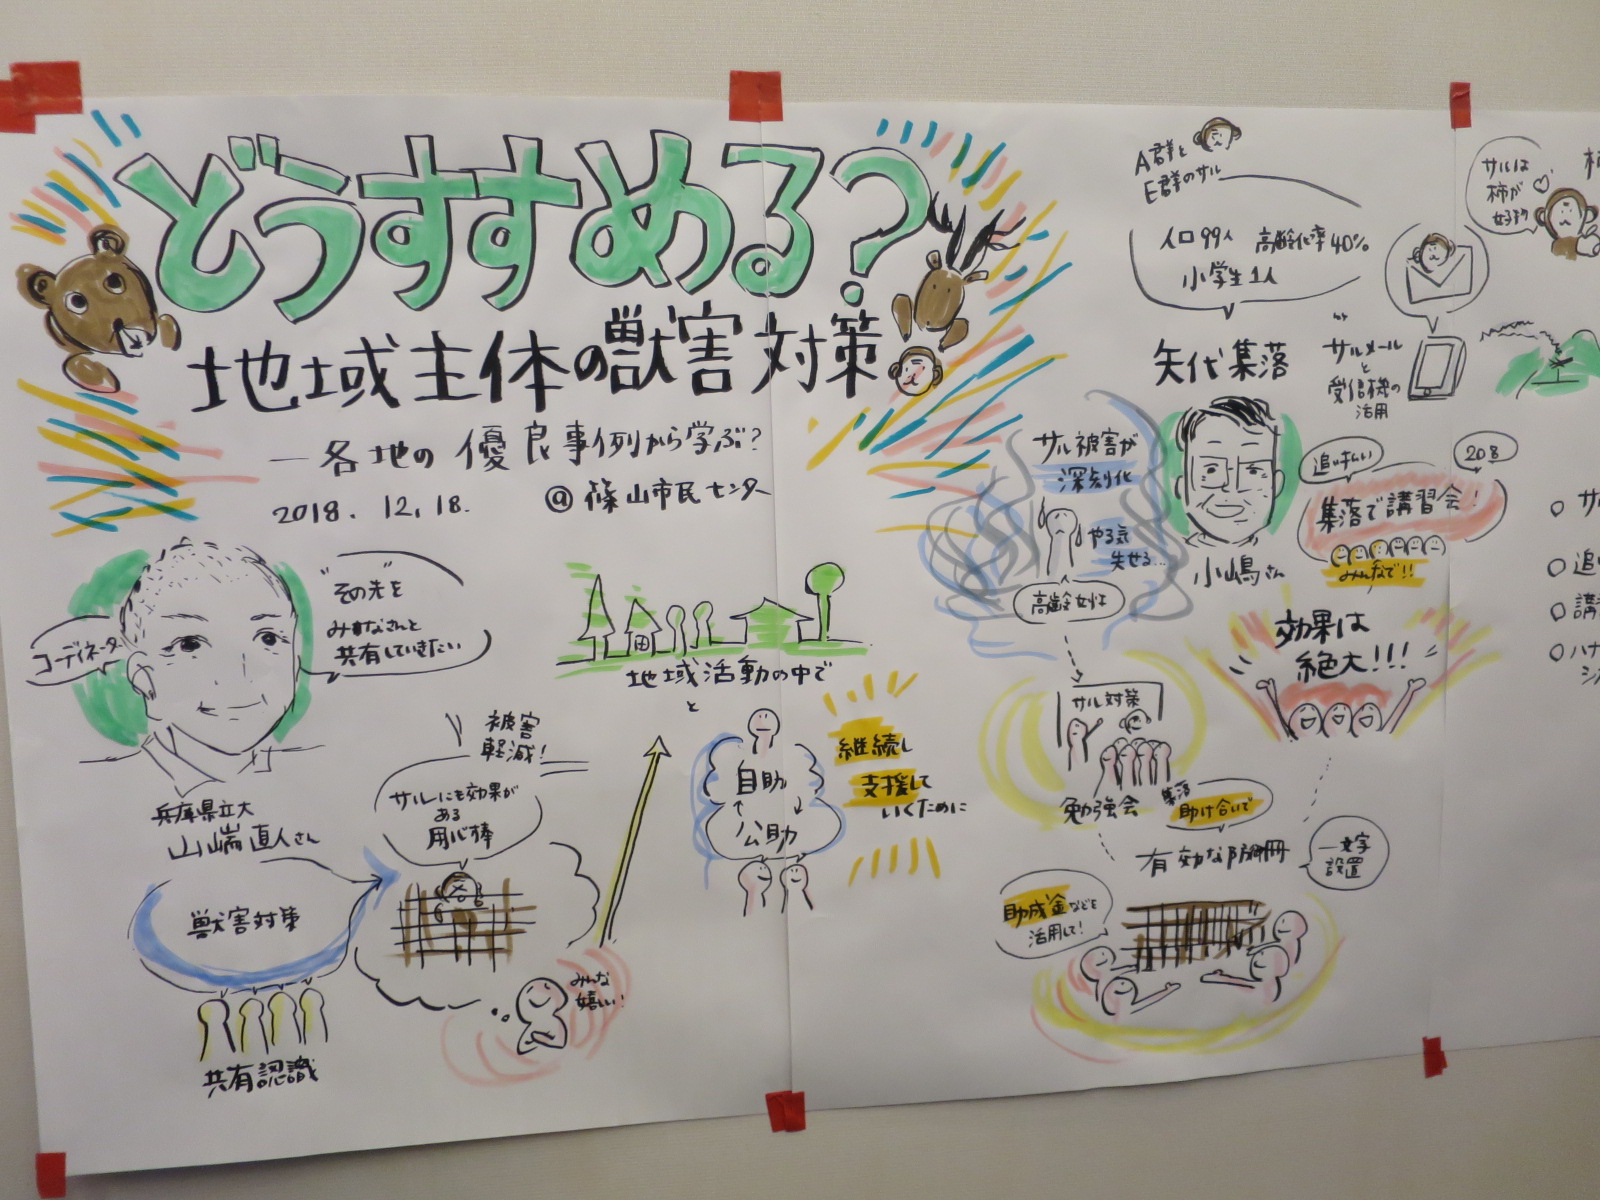 どうすすめる?
地域主体の獣害対策
ー各地の優良事例から学ぶ?
2018.12.18.
@篠山市民センター
コーディネーター
"その先"を
みなさんと
共有していきたい
兵庫県立大
山端直人さん
獣害対策
共有認識
被害
軽減!
サルにも効果が
ある
用心棒
みんな
嬉しい!
地域活動の中で
と
自助
公助
継続し
支援して
いくために
A群と
E群のサル
人口99人 高齢化率40%
小学生1人
矢代集落
サルメール
と
受信機の
活用
サル被害が
深刻化
やる気
失せる…
高齢女性
小嶋さん
追い払い
208
集落で講習会!
みんなで!!
サル対策
勉強会
効果は
絶大!!!
集落
助け合いで
有効な防護柵
一文字
設置
助成金などを
活用して!
サルは
柿が
好き
柿
サ
追い
講
ハナ